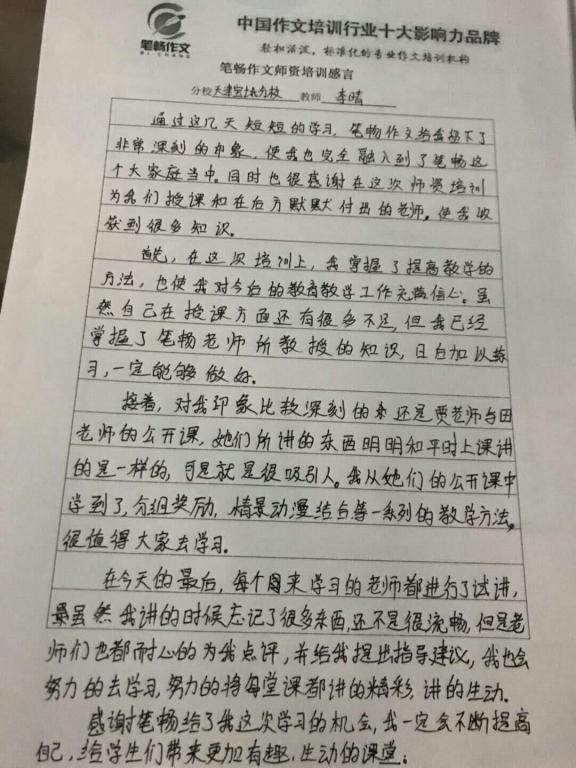 中国作文培训行业十大影响力品牌
笔畅作文
BI CHANG
轻松活泼、标准化的专业作文培训机构
笔畅作文师资培训感言
分校天津宝坻分校 教师 李晴
通过这几天短短的学习，笔畅作文给我留下了
非常深刻的印象，使我也完全融入到了笔畅这
个大家庭当中。同时也很感谢在这次师资培训
为我们授课和在后方默默付出的老师。使我收
获到很多知识。
首先，在这次培训上，我掌握了提高教学的
方法，也使我对今后的教育教学工作充满信心。虽
然自己在授课方面还有很多不足，但我已经
掌握了笔畅老师所教授的知识，日后加以练
习，一定能够做好。
接着，对我印象比较深刻的还是贾老师与田
老师的公开课，她们所讲的东西明明和平时上课讲
的是一样的，可是就是很吸引人。我从她们的公开课中
学到了，分组奖励，情景动漫结合等一系列的教学方法。
很值得大家去学习。
在今天的最后，每个周来学习的老师都进行了试讲，
虽然我讲的时候忘记了很多东西，还不是很流畅，但是老
师们也都耐心的为我点评，并给我提出指导建议，我也会
努力的去学习，努力的将每堂课都讲的精彩，讲的生动。
感谢笔畅给了我这次学习的机会，我一定会不断提高
自己，给学生们带来更加有趣，生动的课堂；